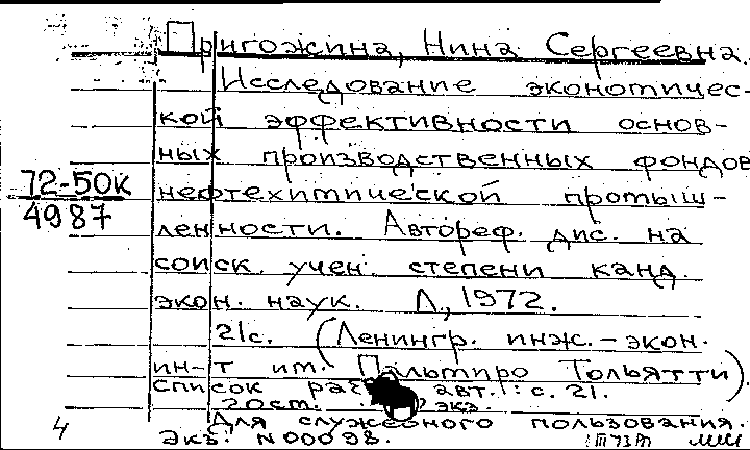 Пригожина, Нина Сергеевна.
Исследование экономичес-
кой эффективности основ-
ных производственных фондов
72-50к
4987
нефтехимической промыш-
ленности. Автореф. дис. на
соиск. учен. степени канд.
экон. наук. Л., 1972.
21с. (Ленингр. инж.-экон.
ин-т им. Пальмиро Тольятти).
список авт.: с. 21.
экз.
Для служебного пользования.
4
Экз. N 00098.